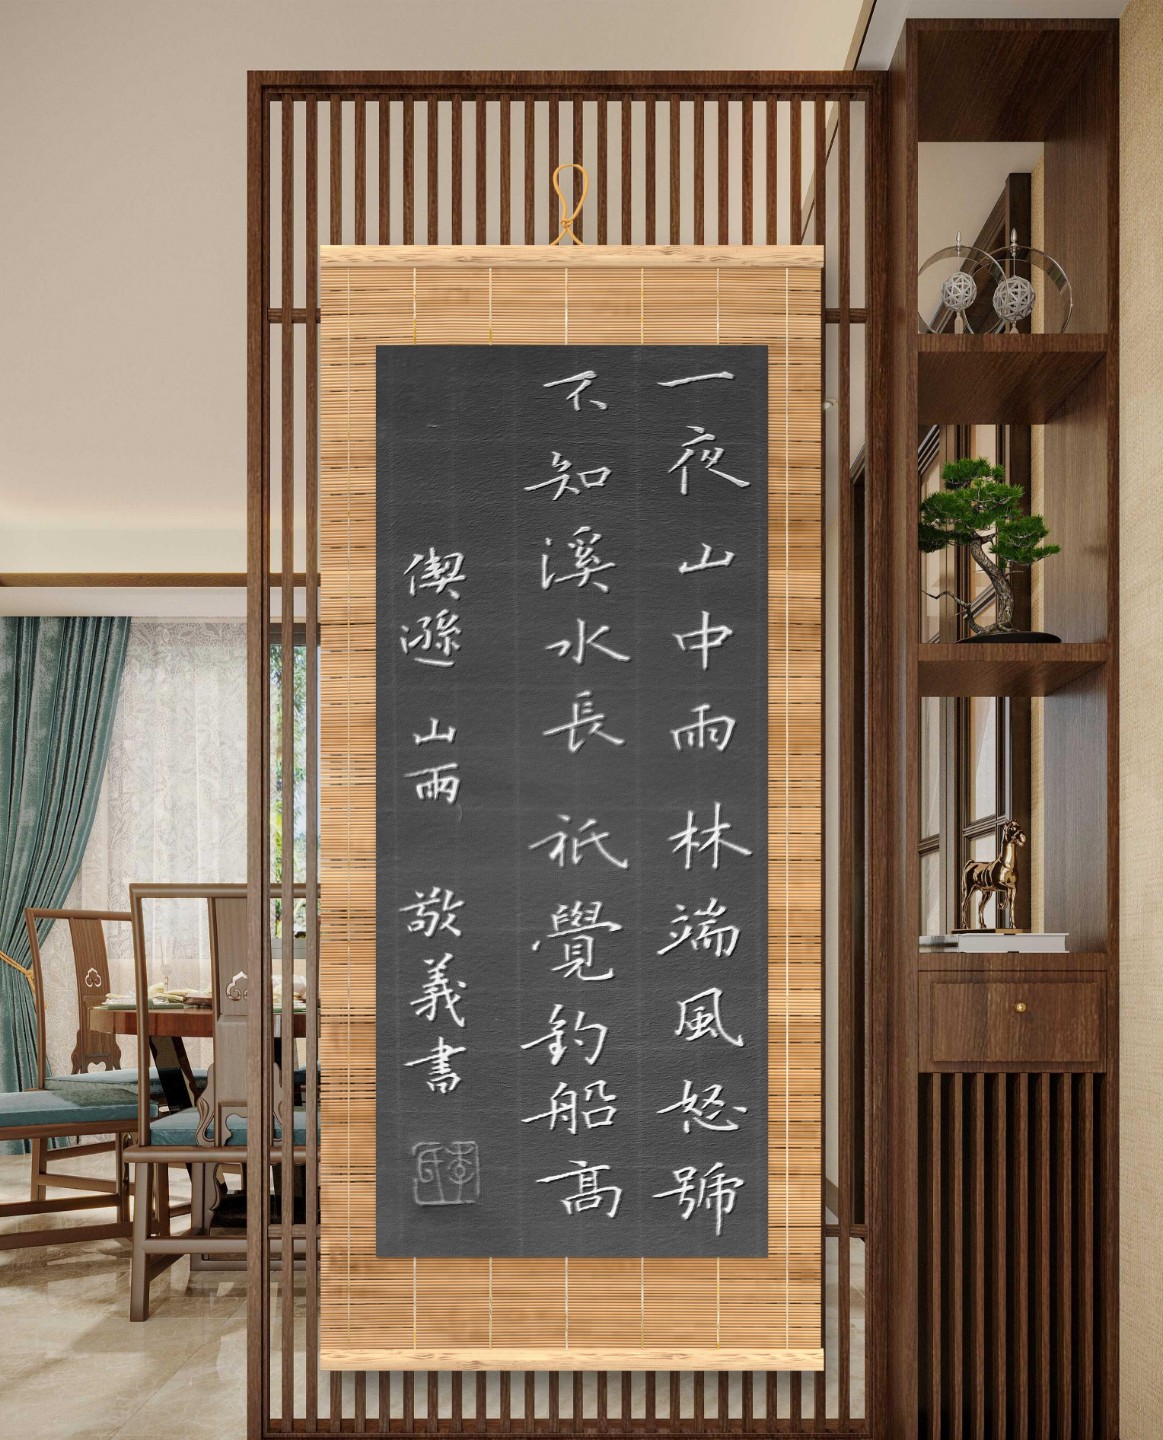 一夜山中雨 林端風怒號
不知溪水長 祇覺釣船高
偰遜 山雨 敬義書